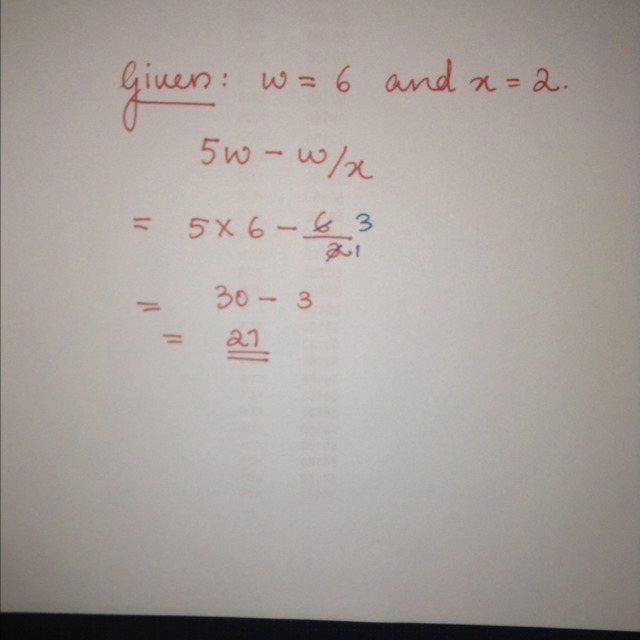 Given: w = 6 and x = 2.
5w - w/x
= 5 × 6 - 6/2 3 1
= 30 - 3
= 27